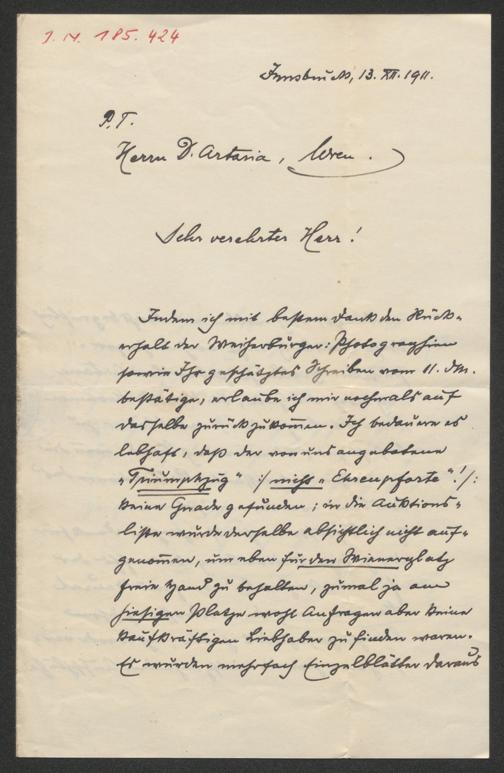 J. N. 185.424
Innsbruck, 13. XII. 1911.
P. T.
Herrn D. Artaria, Wien.
Sehr verehrter Herr!
Indem ich mit bestem Dank den Rück-
erhalt der Weiherburger: Photographien
sowie Ihr geschätztes Schreiben vom 11. ds.
bestätige, erlaube ich mir nochmals auf
dasselbe zurückzukommen. Ich bedauere es
lebhaft, daß der von uns angebotene
„Triumphzug“ :/ nicht „Ehrenpforte“! /:
keine Gnade gefunden; in die Auktions-
liste wurde derselbe absichtlich nicht auf-
genommen, um eben für den Wienerplatz
freie Hand zu behalten, zumal ja am
hiesigen Platze wohl Anfragen aber keine
kaufkräftigen Liebhaber zu finden waren.
Es wurden mehrfach Einzelblätter daraus